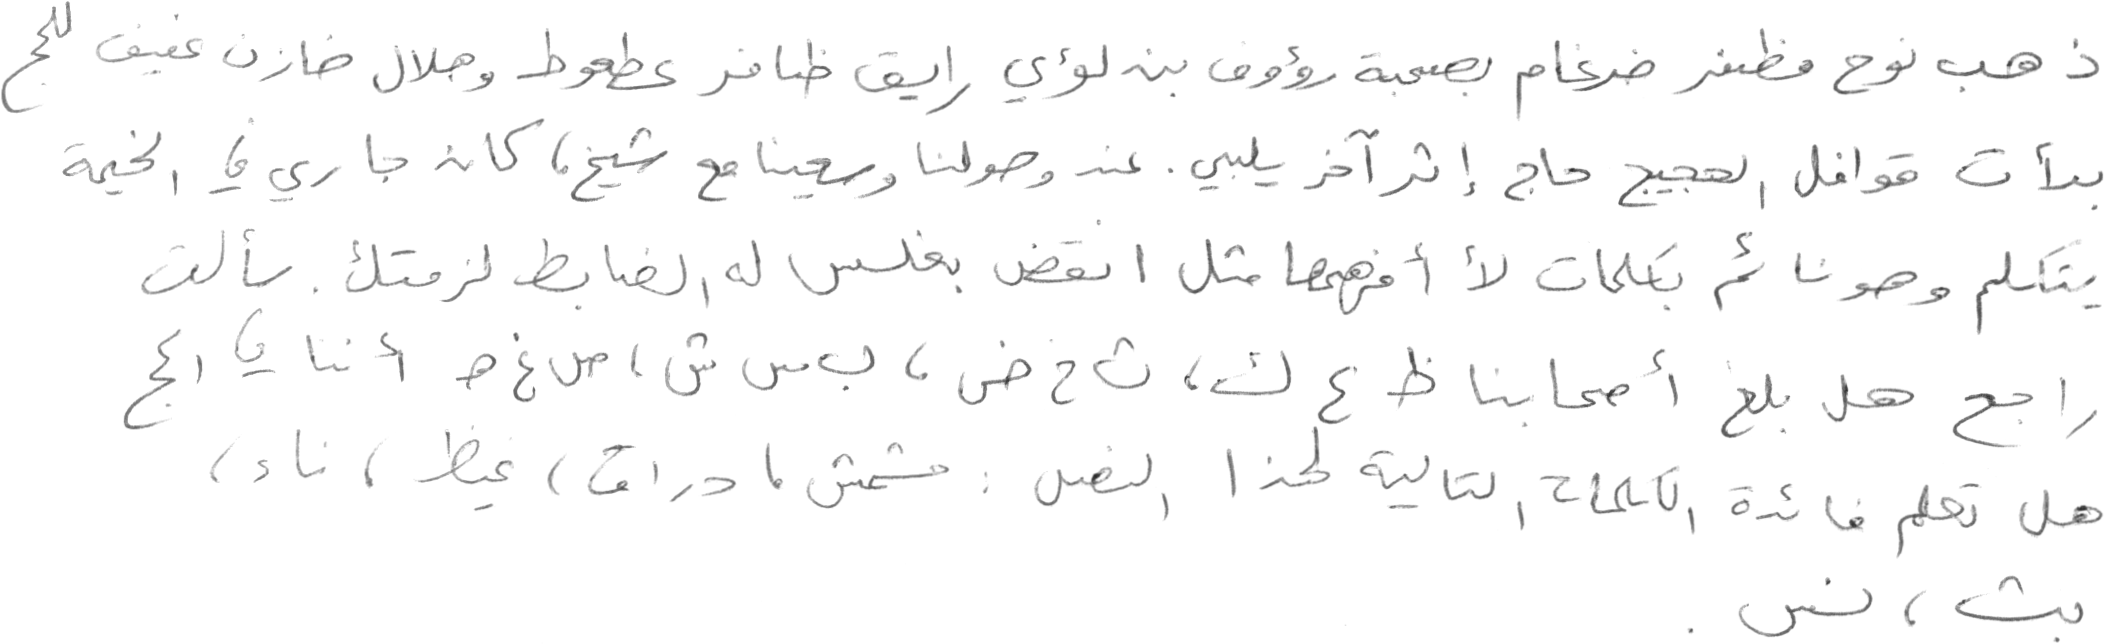 ذهب نوح مظفر ضرغام بصحبة رؤوف بن لؤي رايق ظافر عطعوط وهلال خازن عفيف للحج
بدأت قوافل الحجيج حاج إثر آخر يلبي. عند وصولنا وسعينا مع شيخ، كان جاري في الخيمة
يتكلم وهو نائم بكلمات لا أفهمها مثل انقض بغلس له الضابط لزمتك. سألت
راجع هل بلغ أصحابنا ظ ع ك، ث خ ض، ب س ش، ص غ ه أننا في الحج
هل تعلم فائدة الكلمات التالية لهذا النص: مشمش، دراق، غيظ، ناء،
بث، نص.